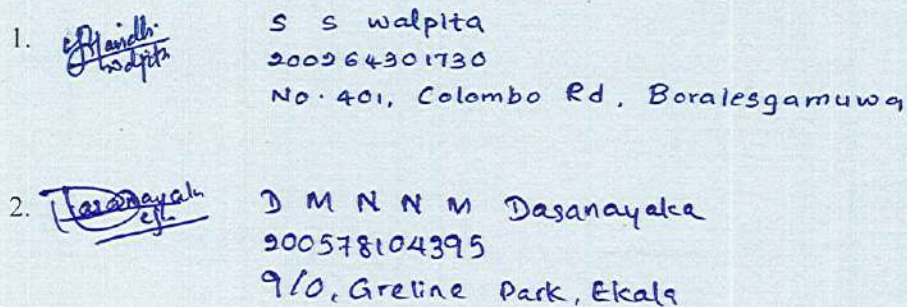 1. S S Walpita
200264301730
No. 401, Colombo Rd, Boralesgamuwa
2. D M N N M Dasanayaka
200578104395
9/0, Greline Park, Ekala